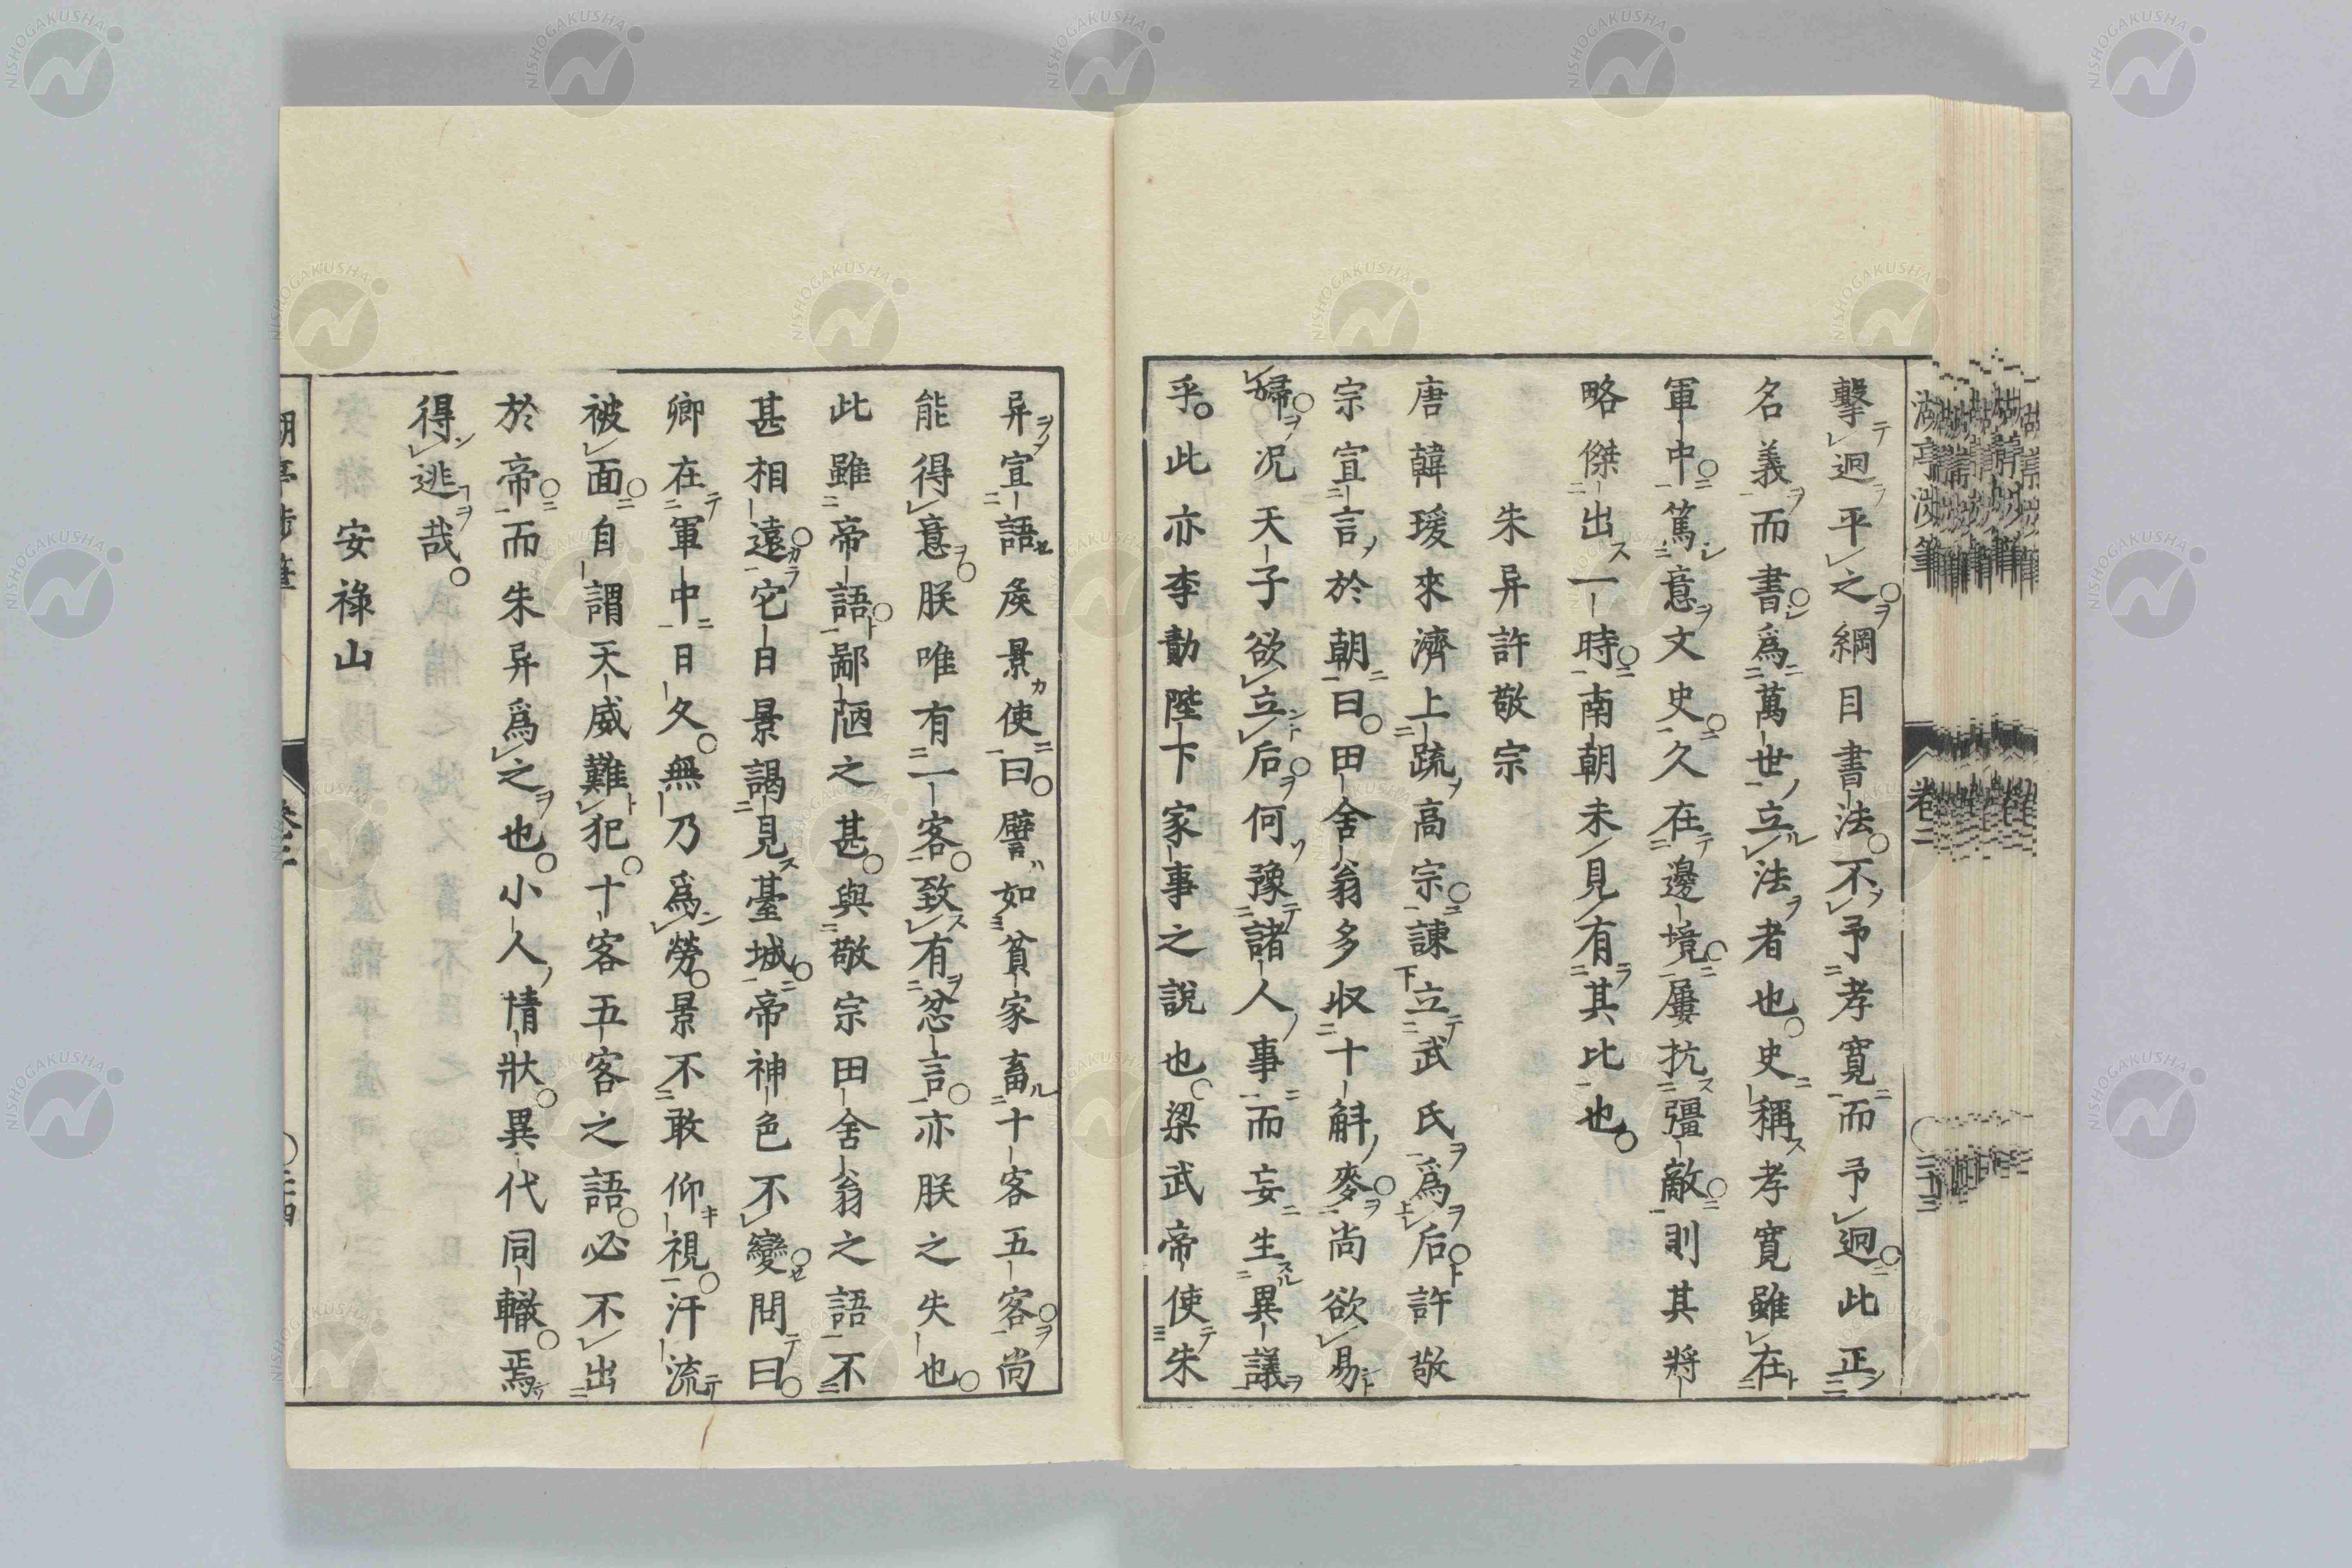 擊迥平之綱目書法不予孝寬而予迥此正
名義而書爲萬世立法者也史稱孝寬雖在
軍中篤意文史久在邊境屢抗彊敵則其將
略傑出一時南朝未見有其比也
朱异許敬宗
唐韓瑗來濟上疏高宗諫立武氏爲后許敬
宗宣言於朝曰田舍翁多収十斛麥尚欲易
婦况天子欲立后何豫諸人事而妄生異議
乎此亦李勣陛下家事之說也梁武帝使朱
异宣語矦景使曰譬如貧家畜十客五客尚
能得意朕唯有一客致有忿言亦朕之失也
此雖帝語鄙陋之甚與敬宗田舍翁之語不
甚相遠它日景謁見臺城帝神色不變問曰
卿在軍中日久無乃爲勞景不敢仰視汗流
被面自謂天威難犯十客五客之語必不出
於帝而朱异爲之也小人情狀異代同轍焉
得逃哉
安祿山
湖亭渉筆
卷二
二十三